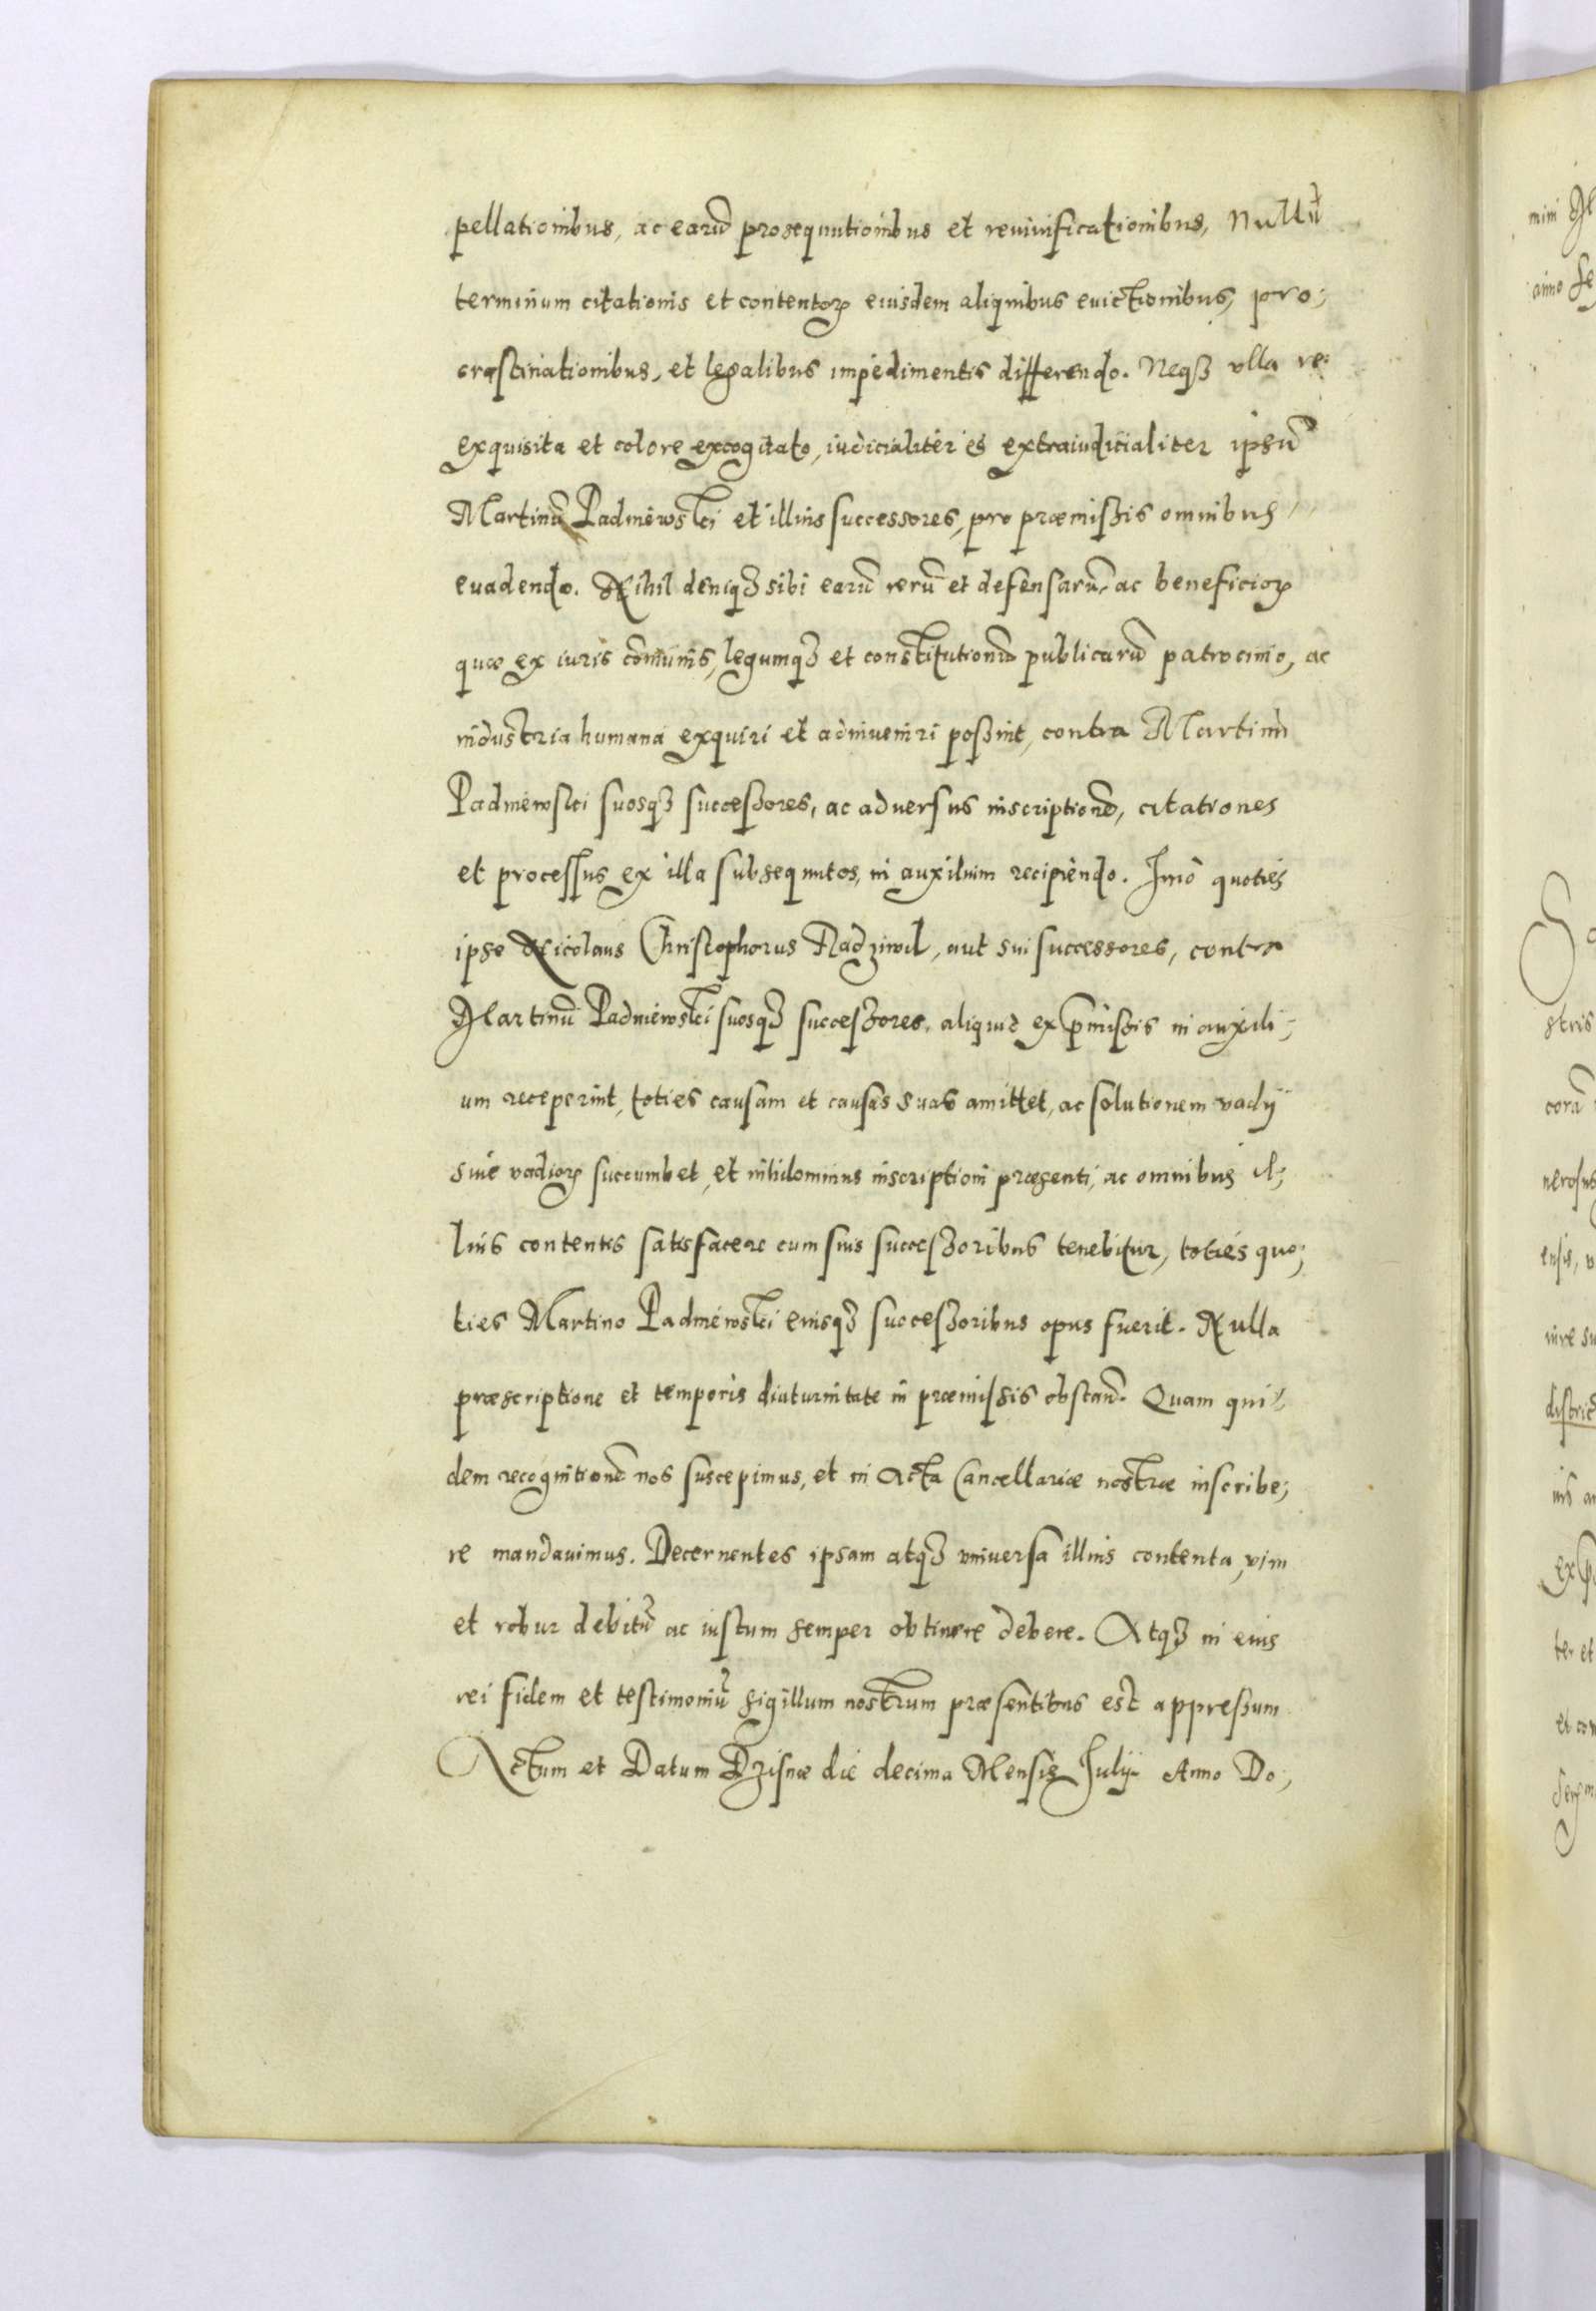 pellationibus, ac earũ prosequutionibus et reuiuificationibus, Nullũ
terminum citationis et contentoꝝ eiusdem aliquibus euictionibus, pro;
crastinationibus, et legalibus impedimentis differendo. Neqꝫ vlla re
exquisita et colore excogitato, iudicialiter et extraiudicialiter ipsũ
Martinũ Padniewskj et illius successores, pro præmißis omnibus
euadendo. Nihil deniqꝫ sibi earũ rerũ et defensarũ, ac beneficioꝝ
quæ ex iuris cõmunis, legumqꝫ et constitutionũ publicarũ patrocinio, ac
industria humana exquiri et adinueniri poßint, contra Martinũ
Padniewskj suosqꝫ succeßores, ac aduersus inscriptionẽ, citationes
et processus ex illa subsequutos, in auxilium recipiendo. Imò quoties
ipse Nicolaus Christophorus Radziwil, aut sui successores, contra
Martinũ Padniewskj suosqꝫ succeßores, aliquid ex p̃mißis in auxili;
um receperint, toties causam et causas suas amittet, ac solutionem vadij
siue vadioꝝ succumbet, et nihilominus inscriptioni præsenti, ac omnibus il;
lius contentis satisfacere cum suis succeßoribus tenebitur, toties quo;
ties Martino Padniewskj eiusqꝫ succeßoribus opus fuerit. Nulla
præscriptione et temporis diuturnitate in præmißis obstañ. Quam qui;
dem recognitionẽ nos suscepimus, et in Acta Cancellariæ nostræ inscribe;
re mandauimus. Decernentes ipsam atqꝫ vniuersa illius contenta, vim
et robur debitũ ac iustum semper obtinere debere. Atqꝫ in eius
rei fidem et testimoniũ sigillum nostrum præsentibus est appreßum
Actum et Datum Dzisnæ die decima Mensis Julij Anno Do;